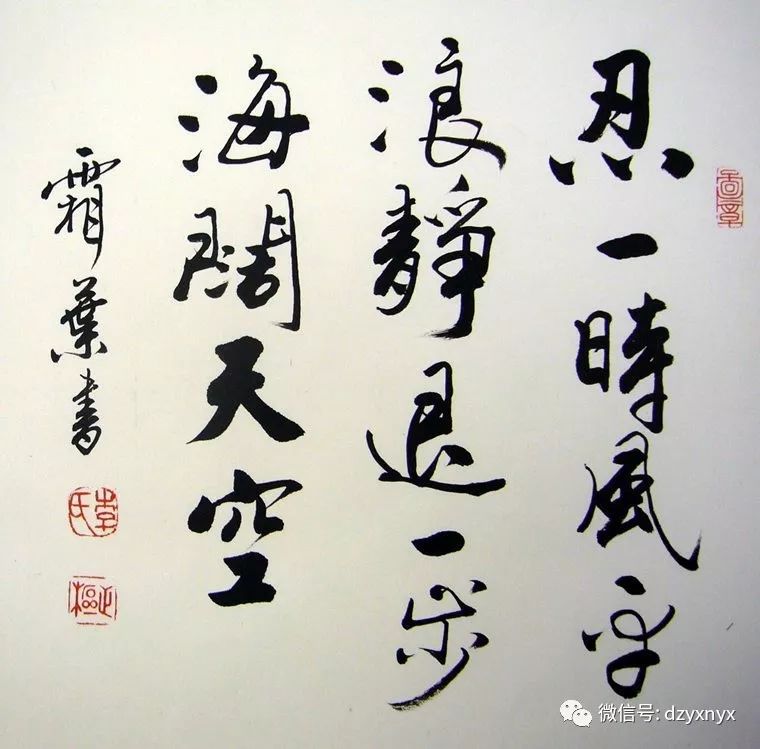 忍一時風平
浪靜退一步
海闊天空
霜葉書
李氏
微信号: dzyxnyx